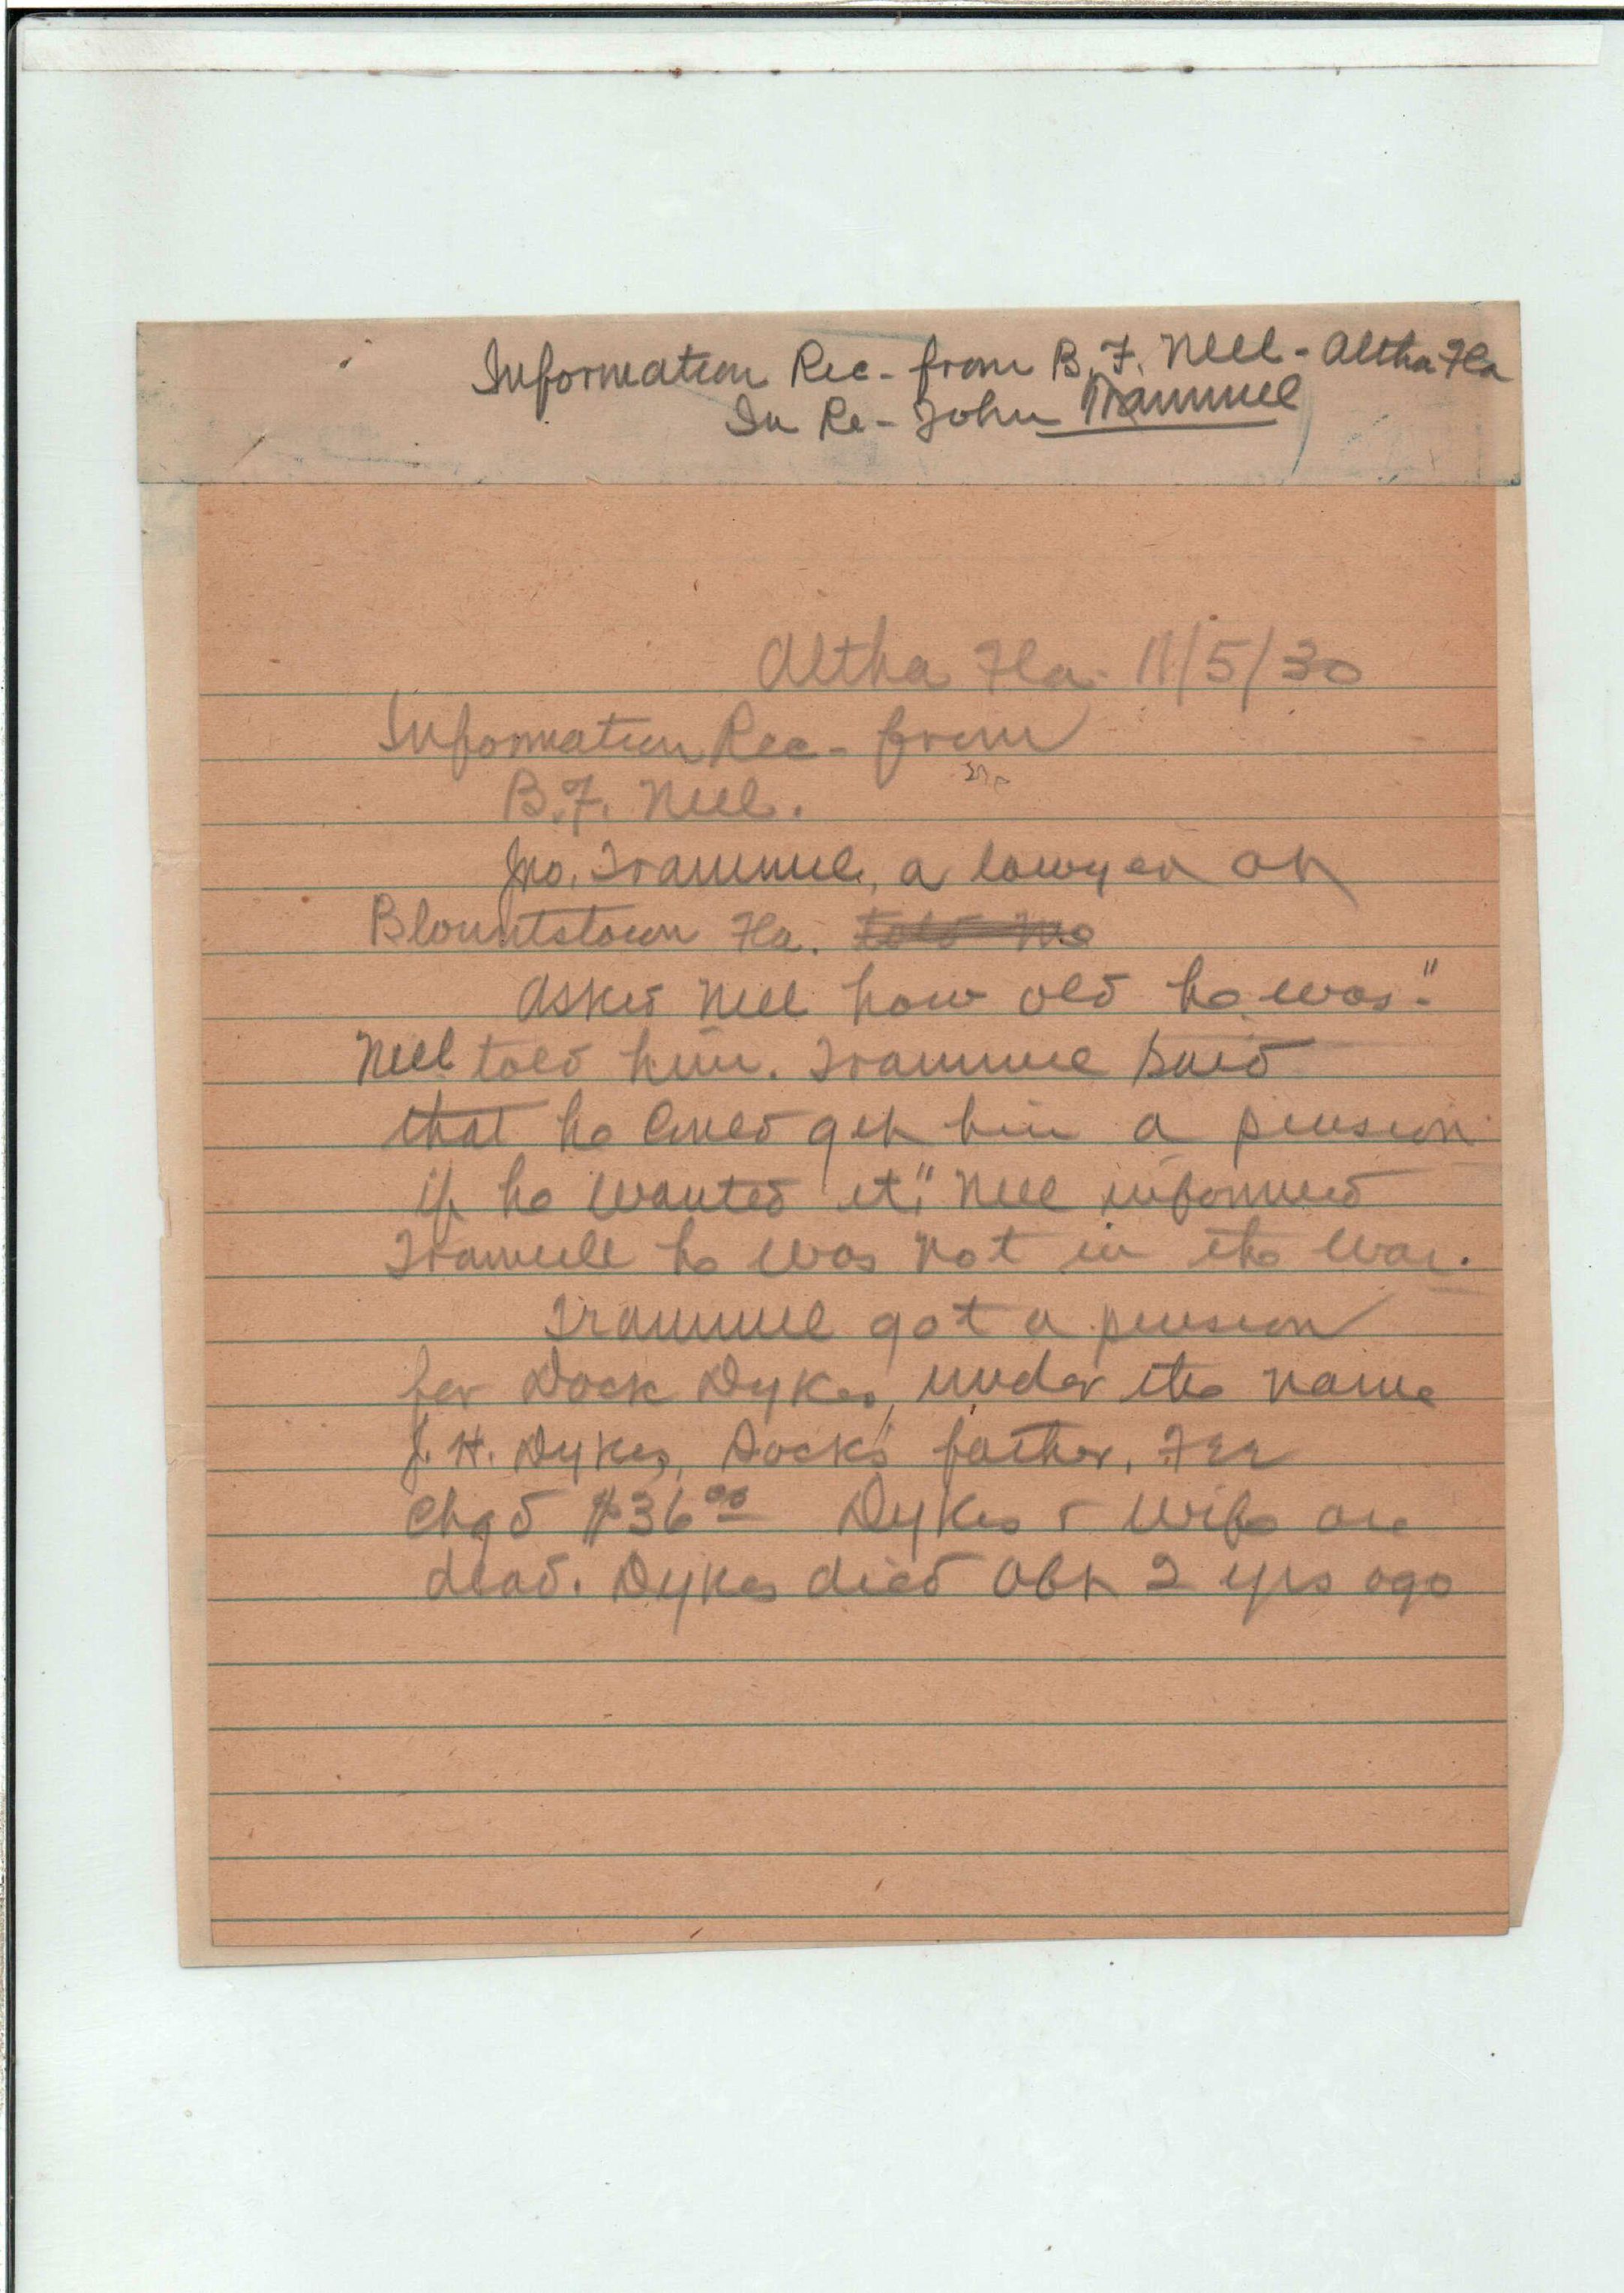 Information Rec- from B. F. Neel - Altha Fla
In Re - John Trammel
Altha Fla. 11/5/30
Information Rec- from
B. F. Neel.
Jno. Trammel, a lawyer at
Blountstown Fla. told me
asked Neel how old he was."
Neel told him. Trammel said
that he could get him a pension
if he wanted it." Neel informed
Tramell he was not in the war.
Trammel got a pension
for Dock Dykes, under the name
J. H. Dykes, Dock's father. Fee
Chgd $36.00 Dykes & wife are
dead. Dykes died abt 2 yrs ago